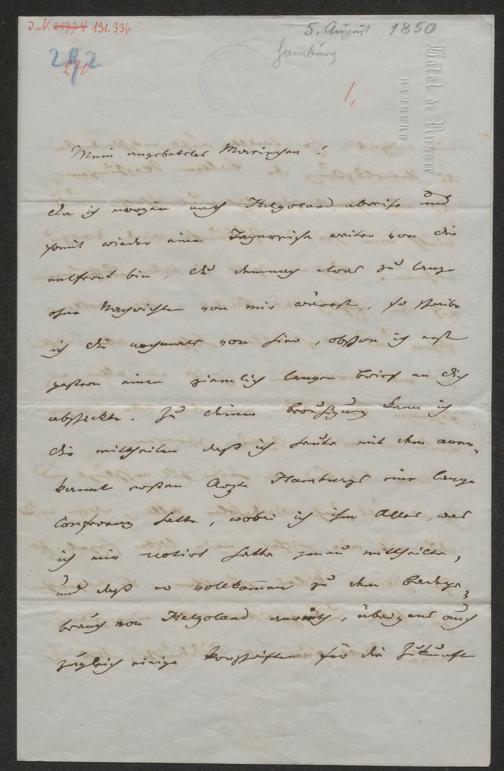 J.N. 131.336
5. August 1850
Hamburg
282
270
1,
Hôtel de
HAMBURG
Mein angebetetes Mariechen!
Da ich morgen nach Helgoland abreise und
somit wieder eine Tagereise weiter von Dir
entfernt bin, Du demnach etwas zu lange
ohne Nachrichten von mir wärest, so schreibe
ich Dir nochmals von hier, obschon ich erst
gestern einen ziemlich langen Brief an Dich
abschickte. Zu Deiner Beruhigung kann ich
Dir mittheilen daß ich heute mit dem aner-
kannt ersten Arzte Hamburgs eine lange
Conferenz hatte, wobei ich ihm Alles, was
ich mir notirt hatte genau mittheilte,
und daß er vollkommen zu dem Badege-
brauch von Helgoland anrieth, übrigens auch
zugleich einige Vorschriften für die Zukunft